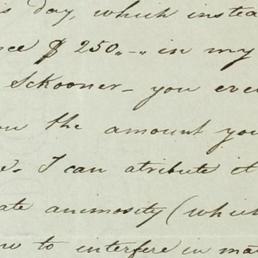 is day, which instea
nce $ 250,, -,, in my
Schooner - you eve
ou the amount you
e. I can atribute it
ate animosity (whic
ow to interfere in ma